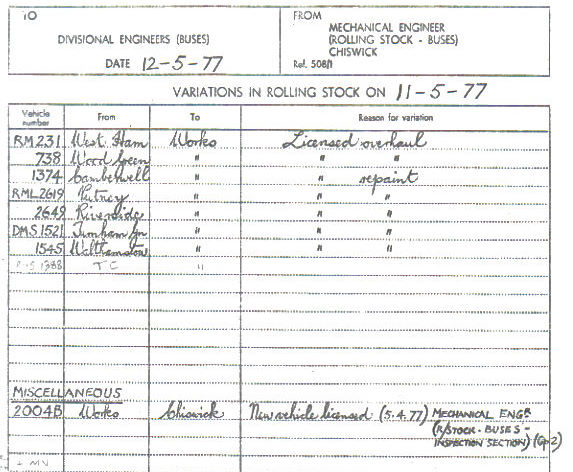 TO
DIVISIONAL ENGINEERS (BUSES)
DATE 12-5-77
FROM
MECHANICAL ENGINEER
(ROLLING STOCK - BUSES)
CHISWICK
Ref. 508/1
VARIATIONS IN ROLLING STOCK ON 11-5-77
Vehicle number From To Reason for variation
RM 231 West Ham Works Licensed overhaul
738 Wood Green " " "
1374 Camberwell " " repaint
RML 2619 Putney " " "
2649 Riverside " " "
DMS 1521 Turnham Gn " " "
1545 Walthamstow " " "
1388 TC "
MISCELLANEOUS
2004B Works Chiswick New vehicle licensed (5.4.77) MECHANICAL ENGR
(R/STOCK - BUSES -
INSPECTION SECTION) (Gp 2)